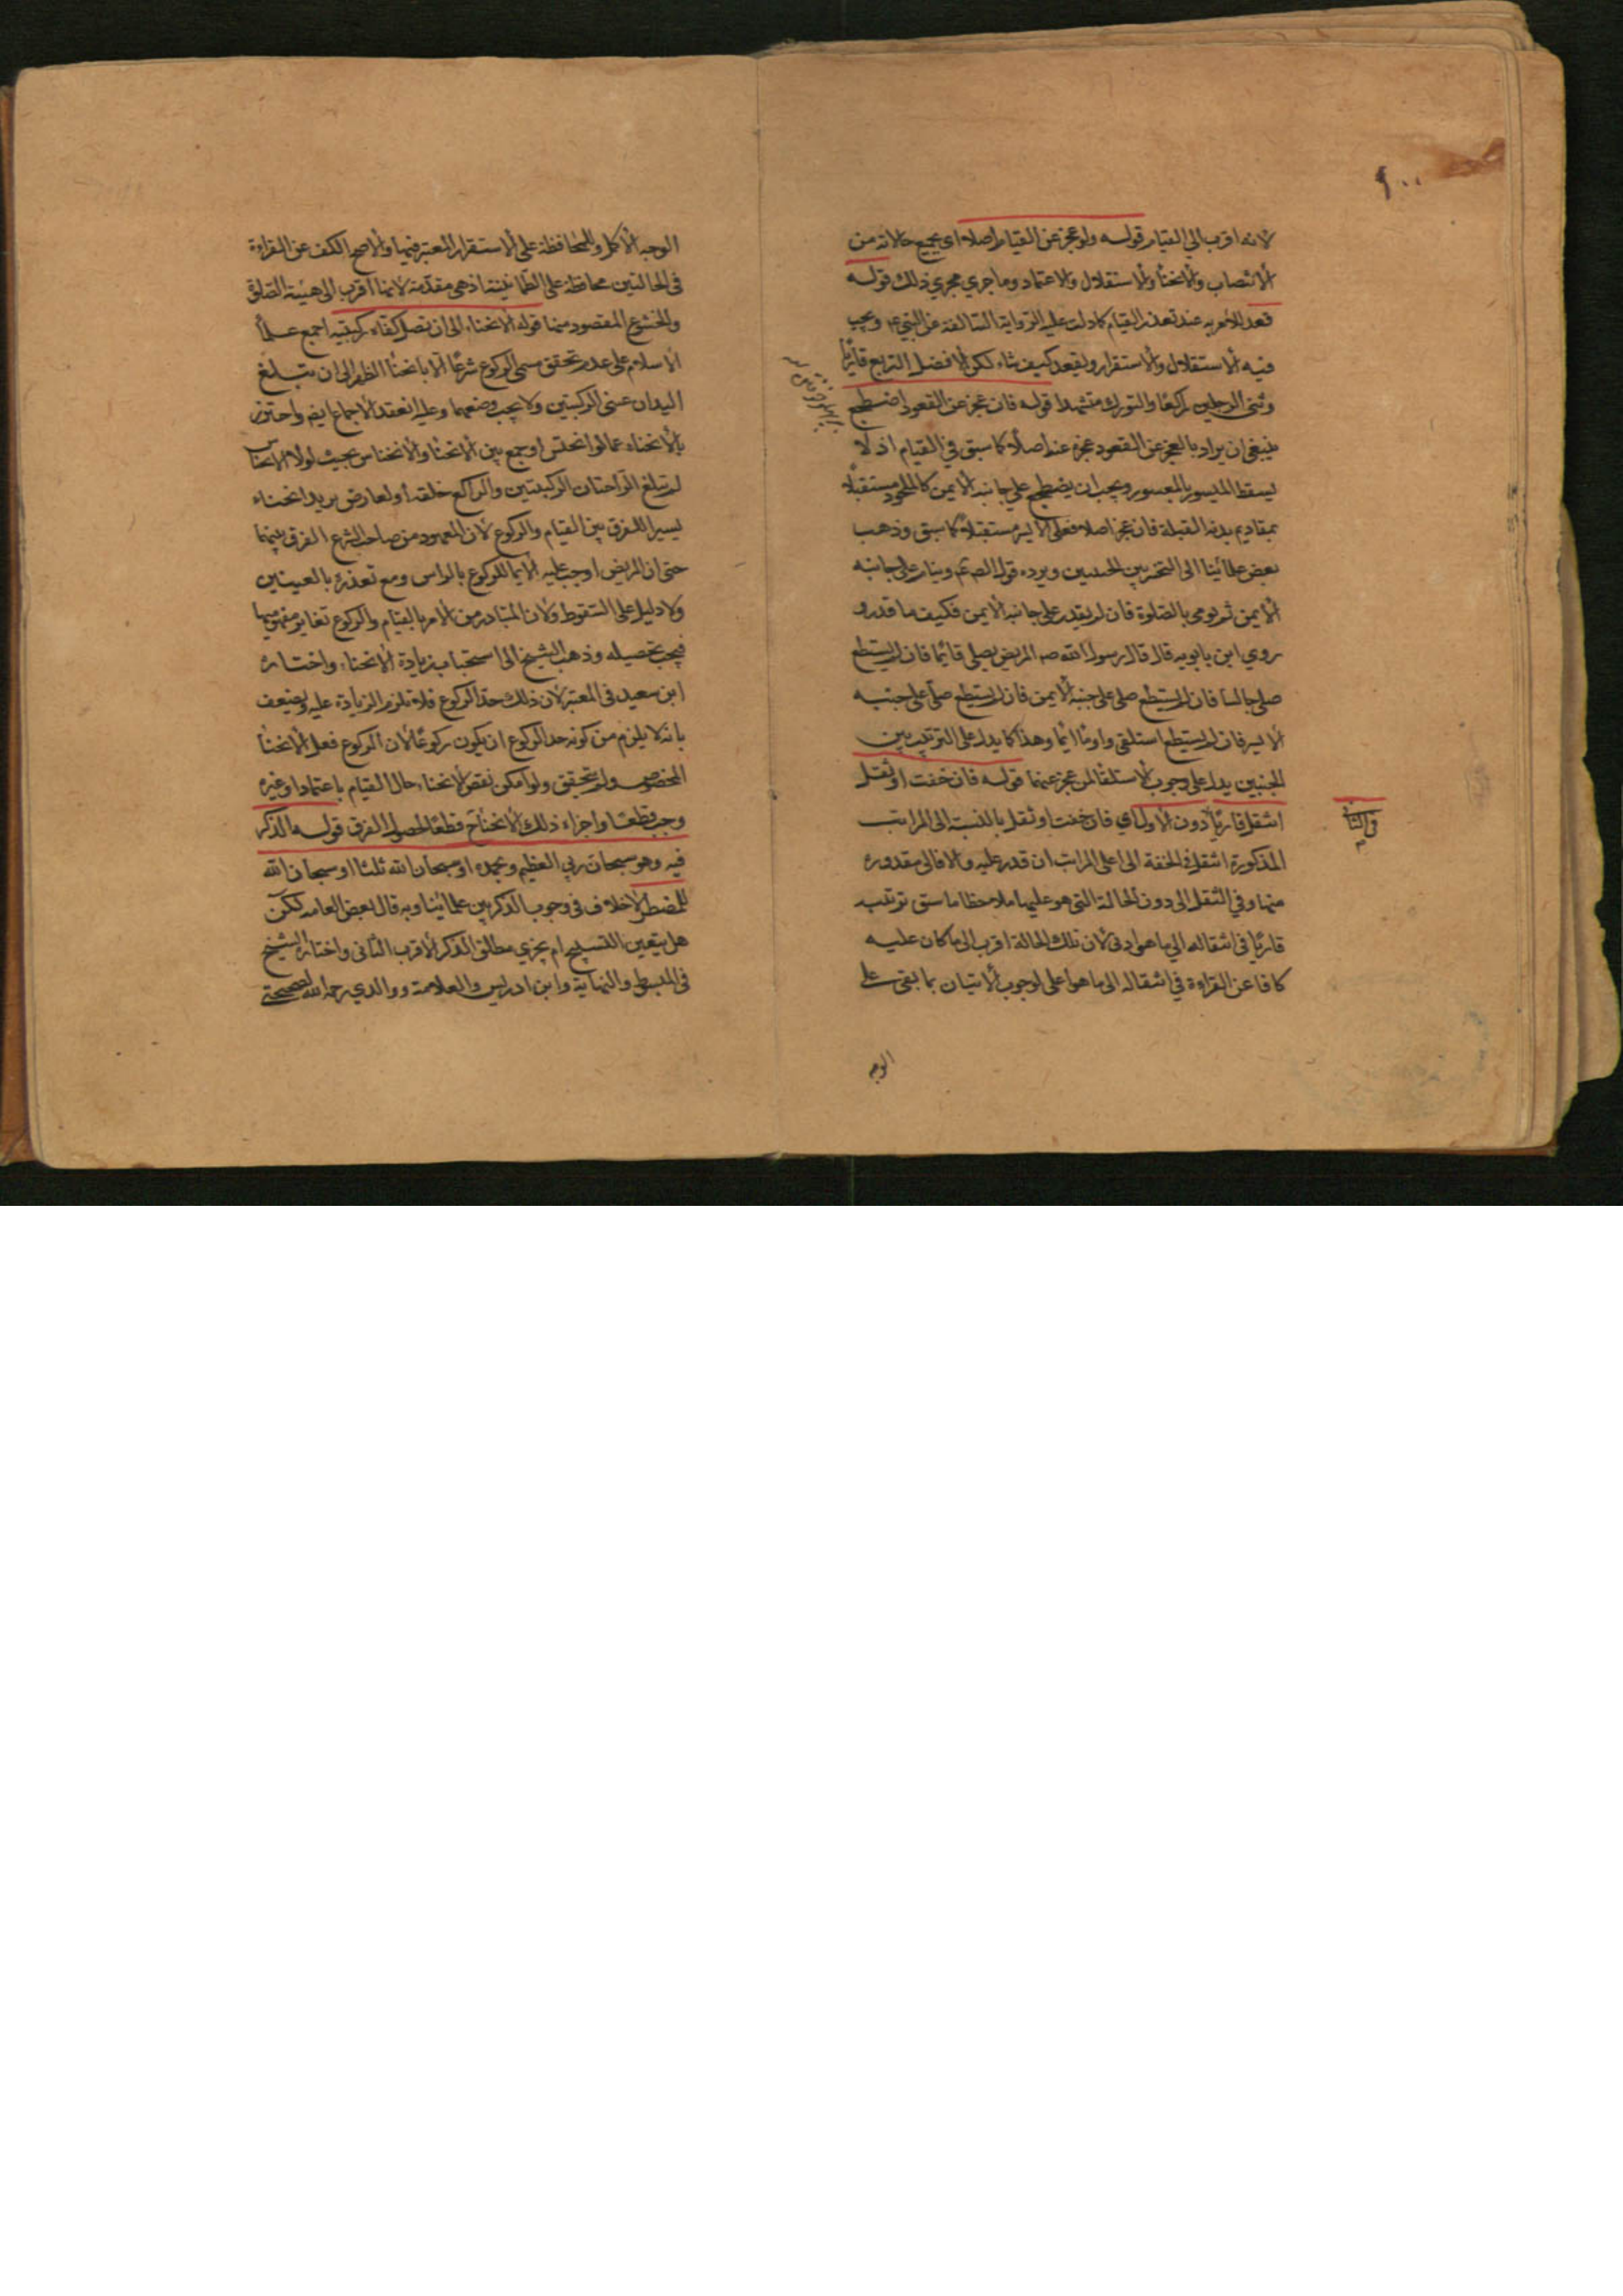 لانه اقرب الى القيام قوله ولو عجز عن القيام اصلا اى بجميع حالاته من
الانتصاب والانحناء والاستقلال والاعتماد وما جري مجري ذلك قوله
قعد للامر به عند تعذر القيام كما دلت عليه الرواية السالفة عن النبي ويجب
فيه الاستقلال والاستقرار ويقعد كيف شاء لكن الافضل التربع قاريا
وثني الرجلين راكعا والتورك متشهدا قوله فان عجز عن القعود اضطجع
ينبغي ان يراد بالعجز عن القعود عجزه عنه اصلا كما سبق في القيام اذ لا
يسقط الميسور بالمعسور ويجب ان يضطجع على جانبه الايمن كالملحود مستقبلا
بمقاديم بدنه القبلة فان عجز اصلا فعلى الايسر مستقبلا كما سبق وذهب
بعض علمائنا الى التخير بين الجنبين ويرده قول الصم وينام على جانبه
الايمن ثم يومى بالصلوة فان لم يقدر على جانبه الايمن فكيف ما قدر و
روي ابن بابويه قال قال رسول الله صه المريض يصلي قائما فان لم يستطع
صلى جالسا فان لم يستطع صلى على جنبه الايمن فان لم يستطع صلى على جنبه
الايسر فان لم يستطع استلقى واوما ايما وهذا كما يدل على الترتيب بين
الجنبين يدل على وجوب الاستلقا لمن عجز عنهما قوله فان خفت او ثقل
انتقل قاريا دون الاول اي فان خفت او ثقل بالنسبة الى المراتب
المذكورة انتقل في الخفة الى اعلى المراتب ان قدر عليه والا فالى مقدوره
منها وفي الثقل الى دون الحالة التي هو عليها ملاحظا ما سبق ترتيب
قاريا في انتقاله الي ما هو ادنى لان تلك الحالة اقرب الى ما كان عليه
كافا عن القراءة في انتقاله الى ما هو اعلى لوجوب الاتيان بما بقى على
الوجه
في الثاني
الوجه الاكمل وللمحافظة على الاستقرار المعتبر فيها والاصح الكف عن القراءة
في الحالتين محافظة على الطمانينة اذ هي مقدمة لانها اقرب الى هيئة الصلوة
والخشوع المقصود منها قوله الانحناء الى ان تصل كفاه ركبتيه اجمع علماء
الاسلام على عدم تحقق مسمى الركوع شرعا الا بانحناء الظهر الى ان تبلغ
اليدان عيني الركبتين ولا يجب وضعهما وعليه انعقد الاجماع ايضم واحترز
بالانحناء عما لو انخنس او جمع بين الانحناء والانخناس بحيث لولا الانخناس
لم تبلغ الراحتان الركبتين والراكع خلقة او لعارض يزيد انحناء
يسيرا للفرق بين القيام والركوع لان المعهود من صاحب الشرع الفرق بينهما
حتى ان المريض اوجب عليه الايما للركوع بالراس ومع تعذره بالعينين
ولا دليل على السقوط ولان المتبادر من الامر بالقيام والركوع تغاير مفهوميهما
فيجب تحصيله وذهب الشيخ الى استحباب زيادة الانحناء واختاره
ابن سعيد في المعتبر لان ذلك حد الركوع فلا تلزم الزيادة عليه ويضعف
بانه لا يلزم من كونه حد الركوع ان يكون ركوعا لان الركوع فعل الانحناء
المخصوص ولم يتحقق ولو امكن نقص الانحناء حال القيام باعتماد او غيره
وجب قطعا واجزاء ذلك الانحناء ح قطعا لحصول الفرق قوله الذكر
فيه وهو سبحان ربي العظيم وبحمده او سبحان الله ثلثا او سبحان الله
للمضطر لا خلاف في وجوب الذكر بين علمائنا وبه قال بعض العامه لكن
هل يتعين التسبيح ام يجزي مطلق الذكر الاقرب الثاني واختاره الشيخ
في المبسوط والنهاية وابن ادريس والعلامة ووالدي رحمه الله لصحيحتي